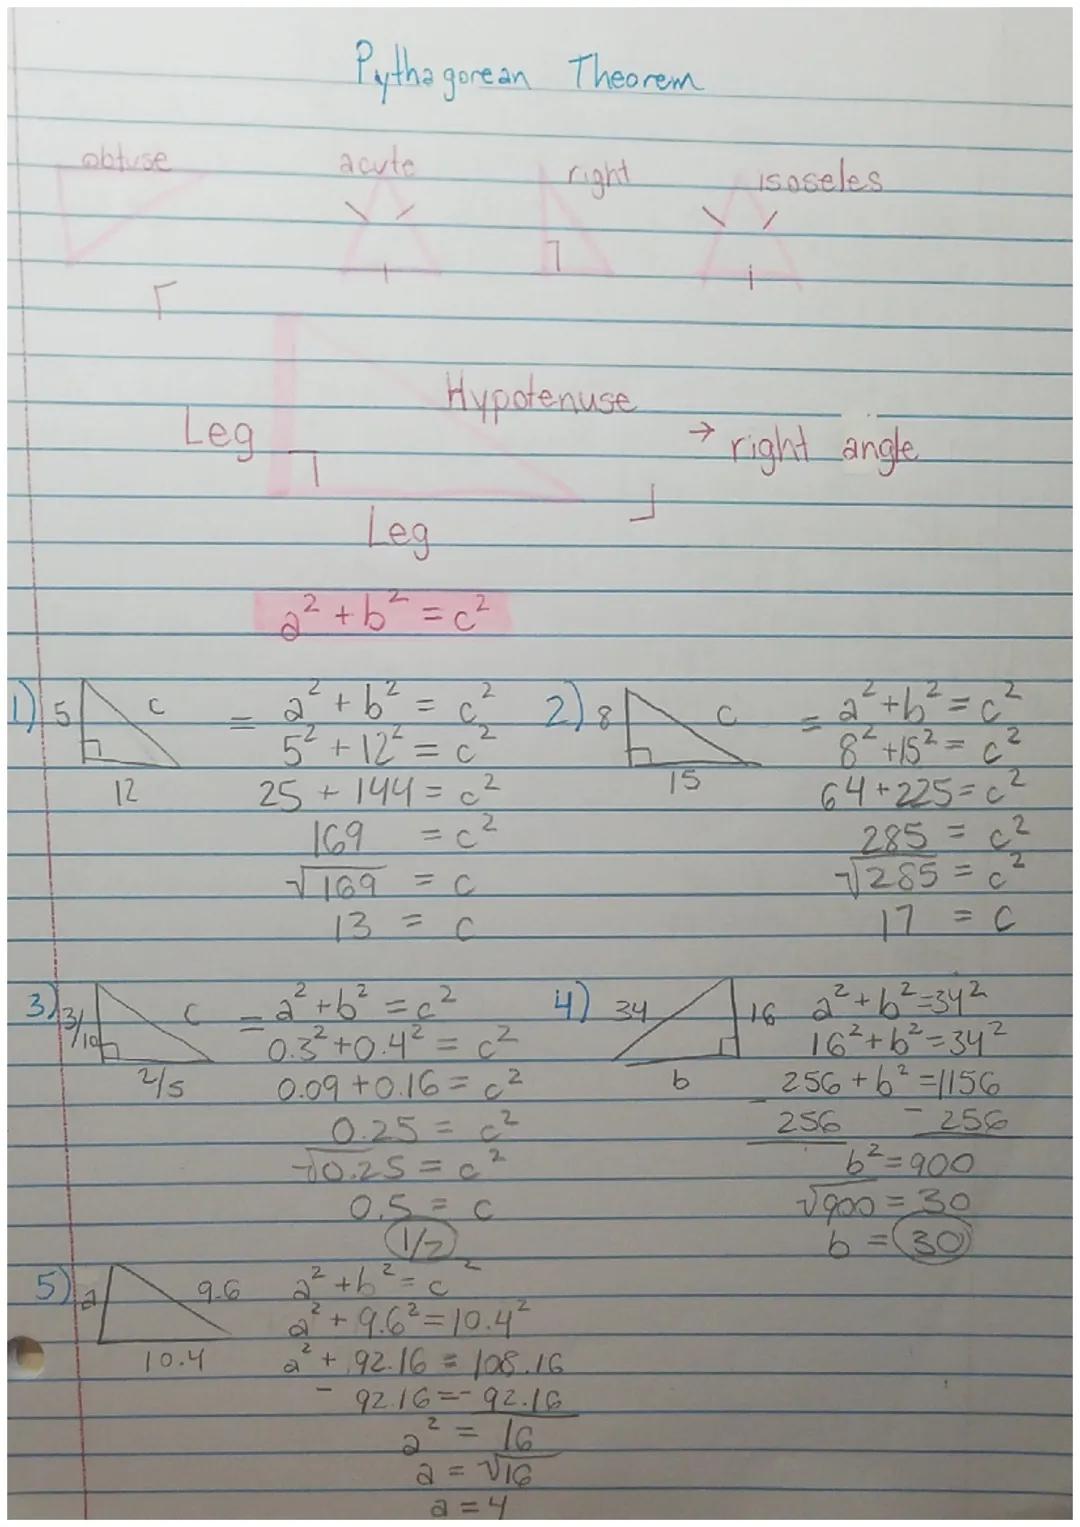 Pythagorean Theorem
obtuse acute right isoseles
Hypotenuse
Leg → right angle
Leg
a² + b² = c²
1) 5 c = a² + b² = c²
5² + 12² = c²
12 25 + 144 = c²
169 = c²
√169 = c
13 = c
2) 8 c = a² + b² = c²
8² + 15² = c²
15 64 + 225 = c²
285 = c²
√285 = c²
17 = c
3) 3/10 c = a² + b² = c²
0.3² + 0.4² = c²
2/5 0.09 + 0.16 = c²
0.25 = c²
√0.25 = c²
0.5 = c
1/2
4) 34 16 a² + b² = 34²
16² + b² = 34²
b 256 + b² = 1156
- 256 - 256
b² = 900
√900 = 30
b = 30
5) a 9.6 a² + b² = c²
a² + 9.6² = 10.4²
10.4 a² + 92.16 = 108.16
- 92.16 = - 92.16
a² = 16
a = √16
a = 4